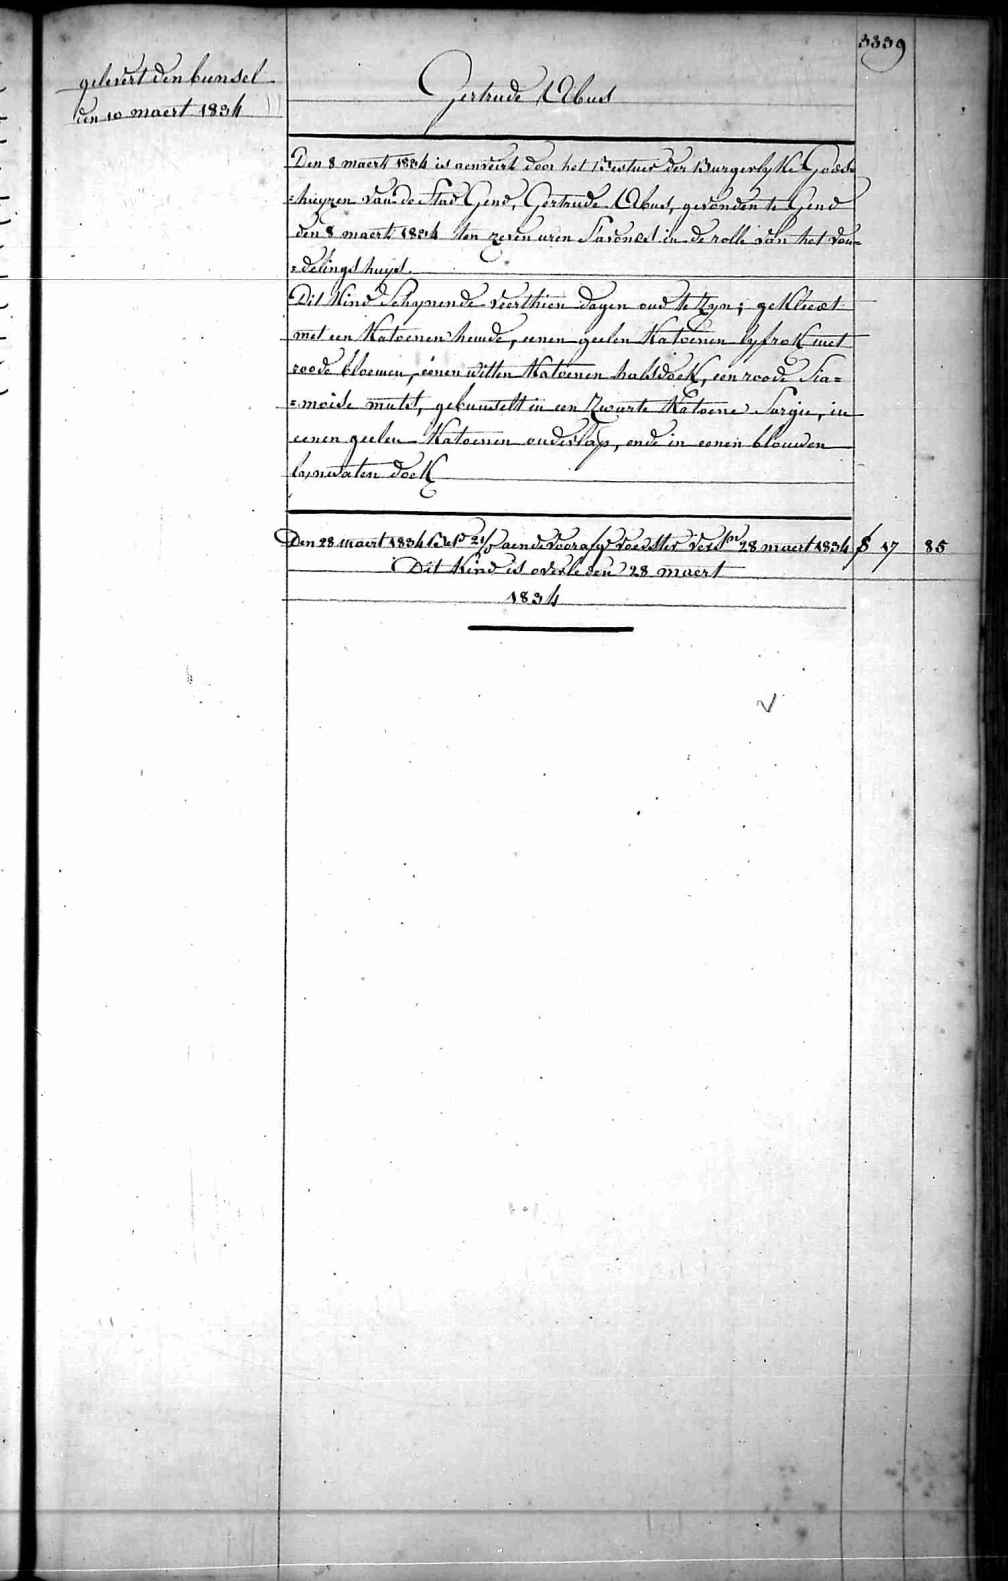 3339
gelevert den bunsel
den 10 maert 1834
Gertrude Abus
Den 8 maert 1834 is aenveirt door het Bestuer der Burgerlyke Gods=
=huyzen van de Stad Gend, Gertrude Abus, gevonden te Gend
den 8 maert 1834 ten zeven uren S'avonds in de rolle van het von=
=delings huys.
Dit Kind Schynende veerthien dagen oud te Zyn; gekleed
met een Katoenen hemde, eenen geelen Katoenen lyfrok met
roode bloemen, eénen witten Katoenen halsdoek, een roode Sia=
=moise muts, gebunselt in een Zwarte Katoene Sargie, in
eenen geelen Katoenen onderlap, ende in eenen blauwen
lynwaten doek
Den 28 maert 1834 aen de voedster 28 maert 1834 17 85
Dit Kind is overleden 28 maert
1834